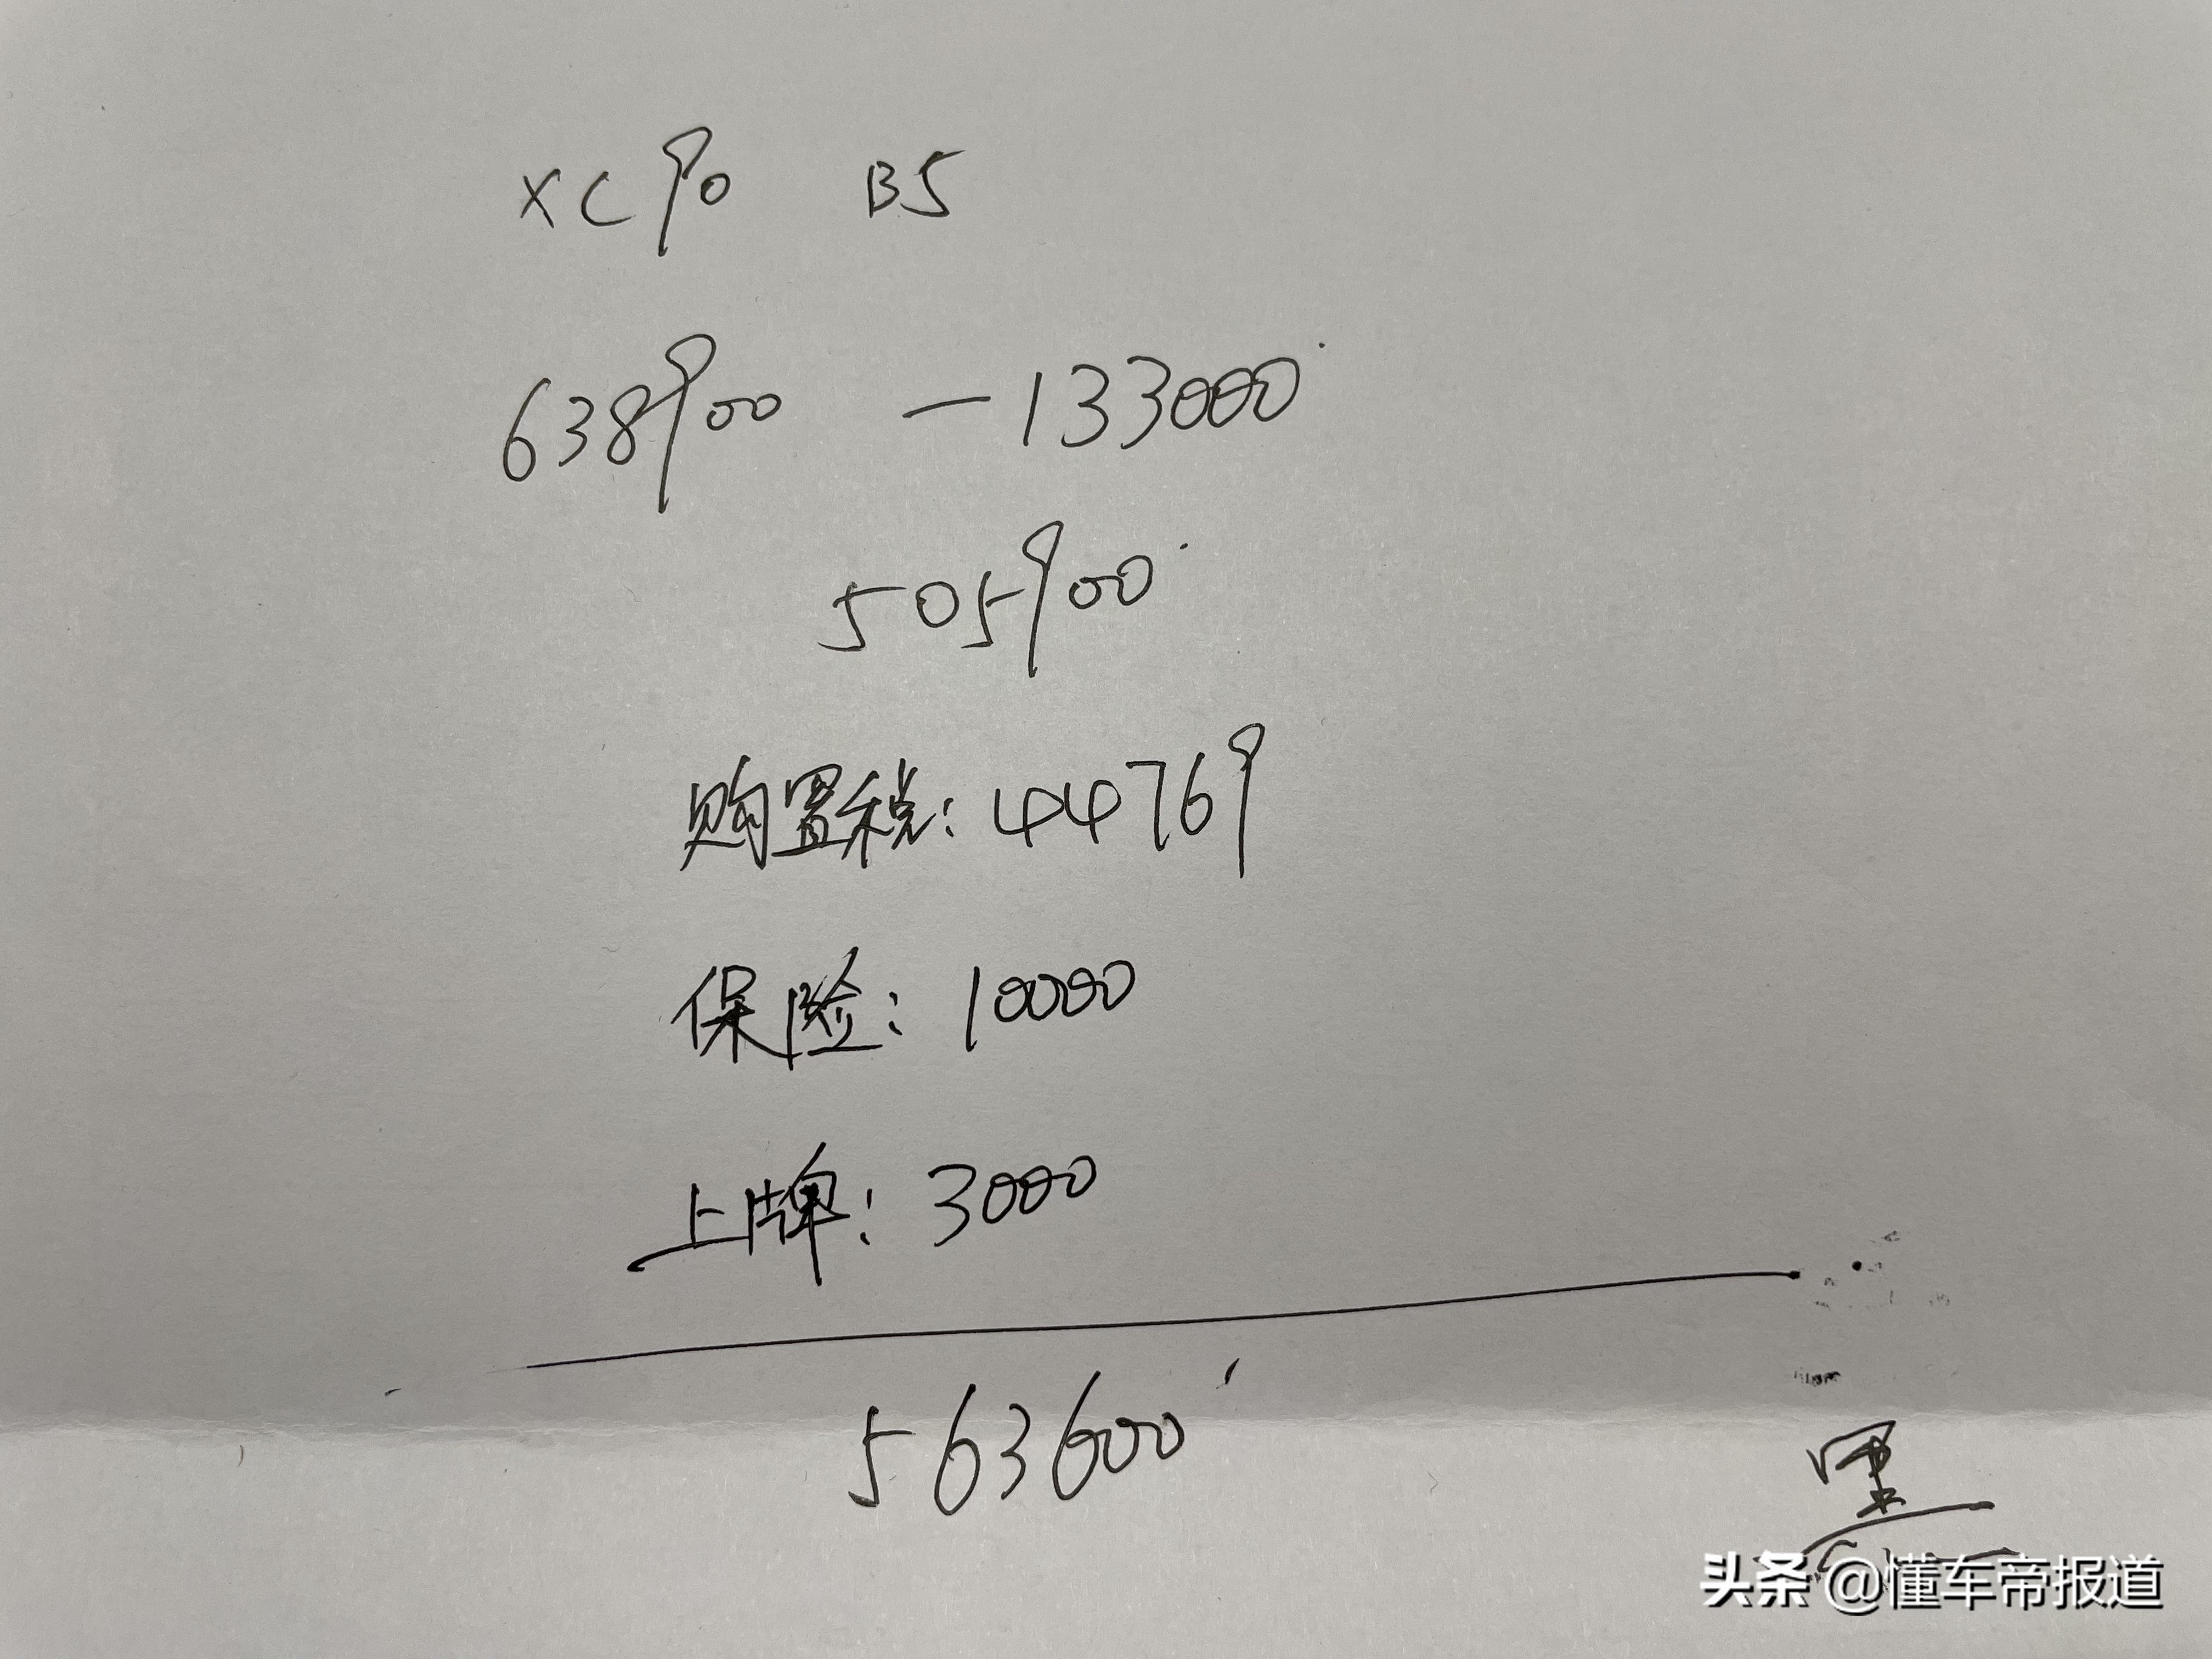 XC90 B5
638900 -133000
505900
购置税: 44769
保险: 10000
上牌: 3000
563600
黑
头条 @懂车帝报道